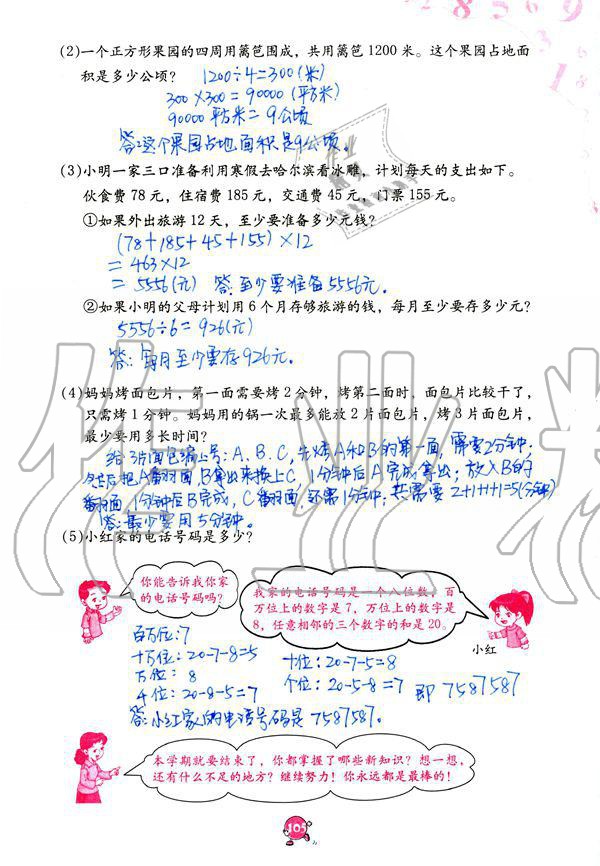 (2)一个正方形果园的四周用篱笆围成，共用篱笆1200米。这个果园占地面
积是多少公顷？ 1200÷4=300(米)
300×300=90000(平方米)
90000平方米=9公顷
答:这个果园占地面积是9公顷。
(3)小明一家三口准备利用寒假去哈尔滨看冰雕，计划每天的支出如下。
伙食费78元，住宿费185元，交通费45元，门票155元。
①如果外出旅游12天，至少要准备多少元钱？
(78+185+45+155)×12
=463×12
=5556(元) 答:至少要准备5556元.
②如果小明的父母计划用6个月存够旅游的钱，每月至少要存多少元？
5556÷6=926(元)
答:每月至少要存926元.
(4)妈妈烤面包片，第一面需要烤2分钟，烤第二面时，面包片比较干了，
只需烤1分钟。妈妈用的锅一次最多能放2片面包片，烤3片面包片，
最少要用多长时间？
给3片面包编上号:A、B、C,先烤A和B的第一面,需要2分钟;
然后把A番羽面,B拿出来换上C,1分钟后A完成拿出;放入B的
番羽面,1分钟后B完成,C番羽面,还需1分钟;共需要2+1+1+1=5(分钟)
答:最少要用5分钟。
(5)小红家的电话号码是多少？
你能告诉我你家
的电话号码吗？
我家的电话号码是一个八位数，百
万位上的数字是7，万位上的数字是
8，任意相邻的三个数字的和是20。
小红
百万位:7
十万位:20-7-8=5 十位:20-7-5=8
万位:8 个位:20-5-8=7 即7587587
千位:20-8-5=7
答:小红家的电话号码是7587587.
本学期就要结束了，你都掌握了哪些新知识？想一想，
还有什么不足的地方？继续努力！你永远都是最棒的！
105
作业精